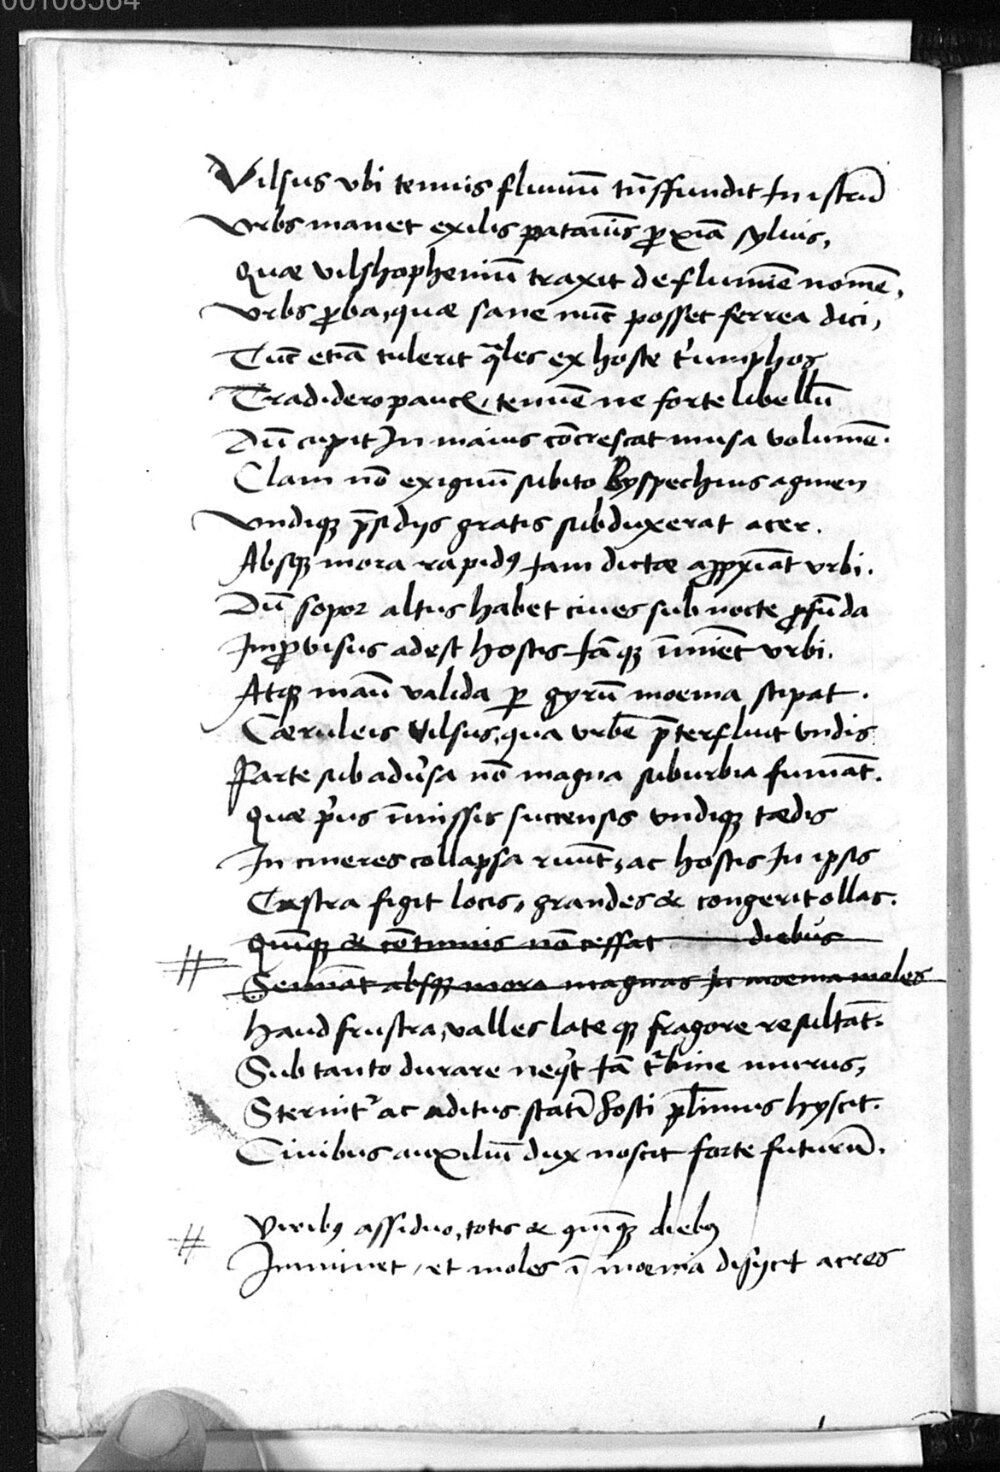 00108564
Vilsus vbi tenuis fluuiũ trãsfundit In istrũ
Vrbs manet exilis patauiis proximã syluis,
Quæ vilshopheniũ traxit de flumine nomẽ,
Vrbs proba, quæ sane nũc posset ferrea dici,
Tũc etiã tulerit q̃les ex hoste triumphos
Tradidero paucis, tenuẽ ne forte libellũ
Dũ cupit In maius cõcrescat musa volumẽ.
Clam nõ exiguũ subito Byspechius agmen
Vndiq; p̃sidijs gratis subduxerat acer.
Absq; mora rapidus Iam dictæ appropxiãt vrbi.
Dũ sopor altus habet ciues sub nocte profũda
Improuisus adest hostis Iã q; ĩminet vrbi.
Atq; manũ valida per gyrũ moenia stipat.
Cæruleis Vilsus, qua vrbẽ p̃terfluit vndis
Parte sub aduersa nõ magna suburbia fumãt.
Quæ prius ĩmissis succensis vndiq; tædis
In cineres collapsa ruũt, ac hostis In ipsis
Castra figit locis, grandes & congerit ollas.
Quinq; & cõtinuis nõ cessat diebus
# Seuiãt absq; mora magnas In moenia moles
Haud frustra, valles late q; fragore resultãt.
Sub tanto durare nequit Iã turbine murus,
Sternitur ac aditus statĩ hosti plurimus hyscit.
Ciuibus auxiliũ dux noscit forte futurũ.
# Viribus assiduo, totis & quinq; diebus
Imminet, et moles ĩ moenia disijcit acres